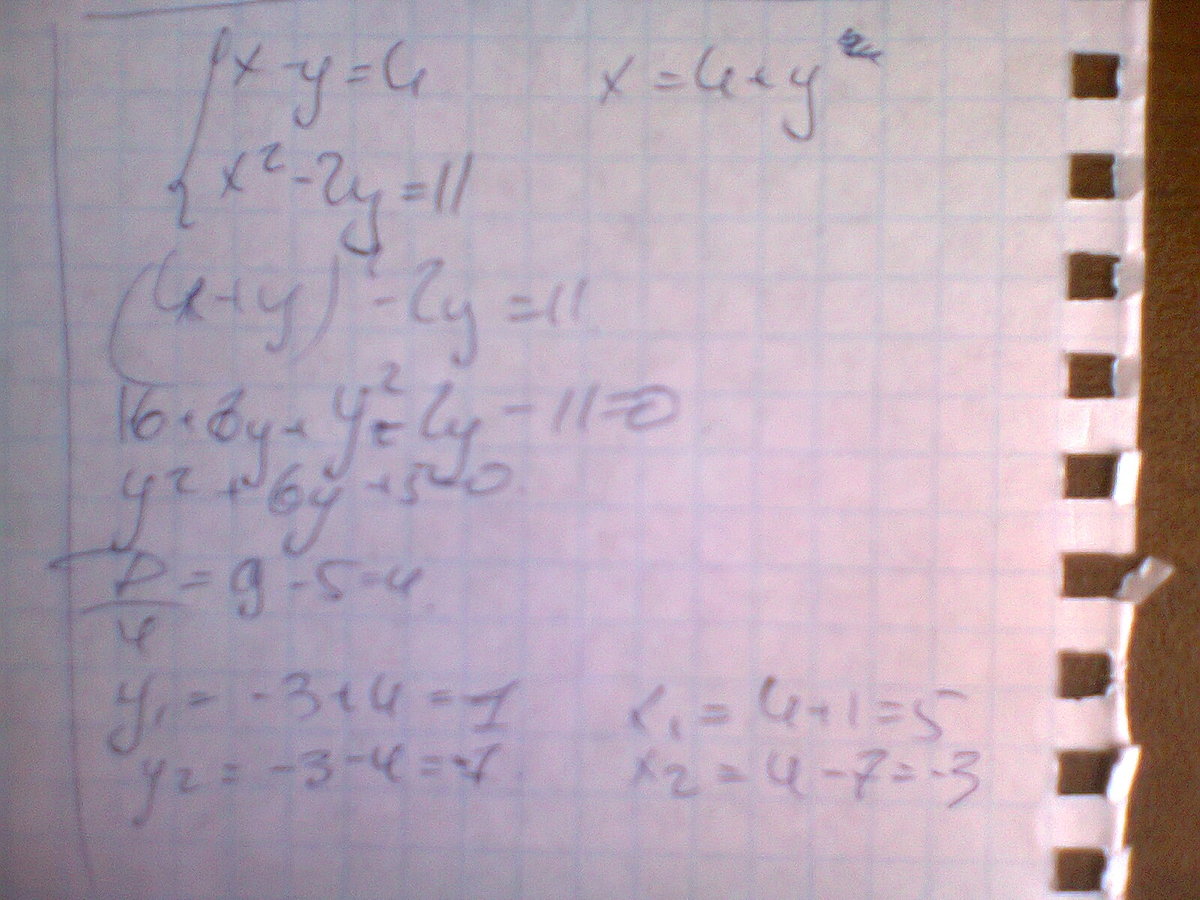 x - y = 4 x = 4 + y
x² - 2y = 11
(4 + y)² - 2y = 11
16 + 8y + y² - 2y - 11 = 0
y² + 6y + 5 = 0
D/4 = 9 - 5 = 4
y₁ = -3 + 4 = 1 x₁ = 4 + 1 = 5
y₂ = -3 - 4 = -7 x₂ = 4 - 7 = -3